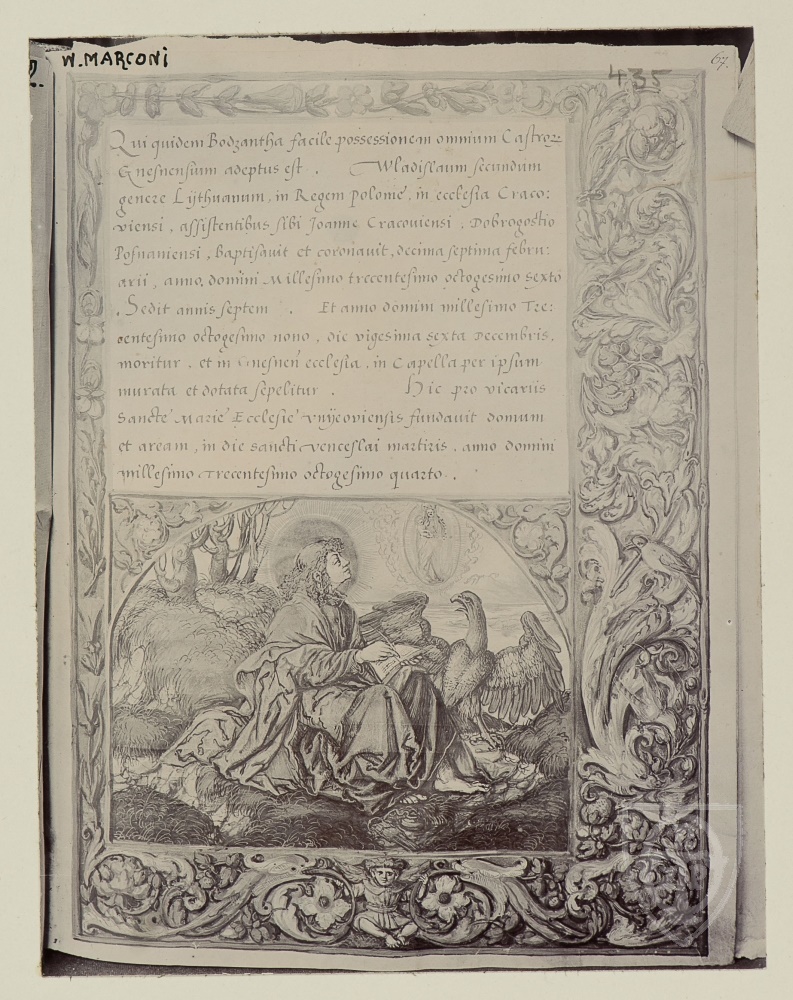 W. MARCONI
435
67.
Qui quidem Bodzantha facile possessionem omnium Castror
Gnesnensium adeptus est . Wladislaum secundum
genere Lijthuanum, in Regem polonie, in ecclesia Craco:
viensi, assistentibus sibi Joanne Cracoviensi, Dobrogostio
Posnaniensi, baptisavit et coronavit, decima septima febru:
arii, anno domini Millesimo trecentesimo octogesimo sexto
. Sedit annis septem . Et anno domini millesimo Tre:
centesimo octogesimo nono, die vigesima sexta Decembris,
moritur, et in Gnesnen ecclesia, in Capella per ipsum
murata et dotata sepelitur . Hic pro vicariis
Sancte Marie Ecclesie vnijeoviensis fundavit domum
et aream, in die sancti venceslai martiris, anno domini
millesimo trecentesimo octogesimo quarto .